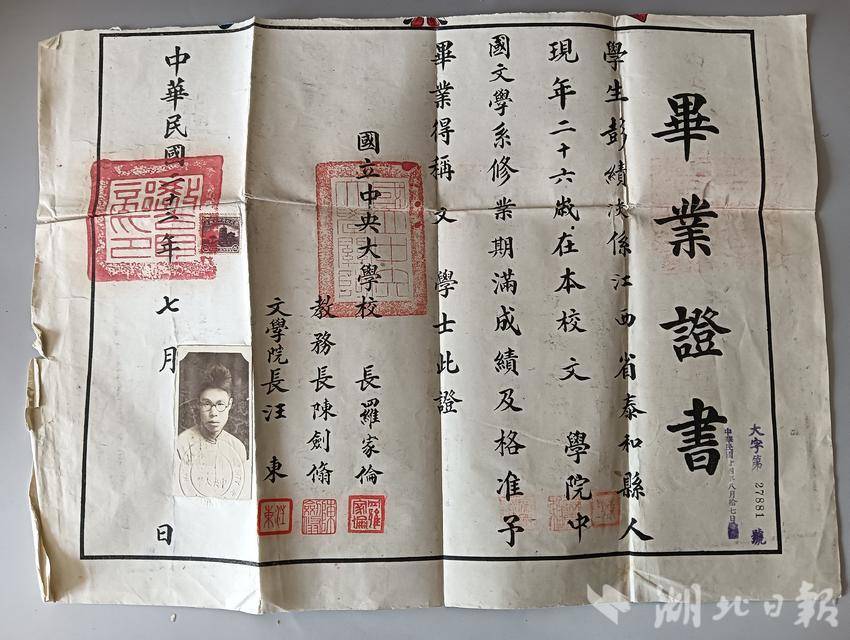 畢業證書
大字第 27881 號
學生彭績淡係江西省泰和縣人
現年二十六歲在本校文 學院中
國文學系修業期滿成績及格准予
畢業得稱 文 學士此證
國立中央大學校 長羅家倫
教務長陳劍脩
文學院長汪東
中華民國二十二年 七月 日
羅家倫
汪東
湖北日報